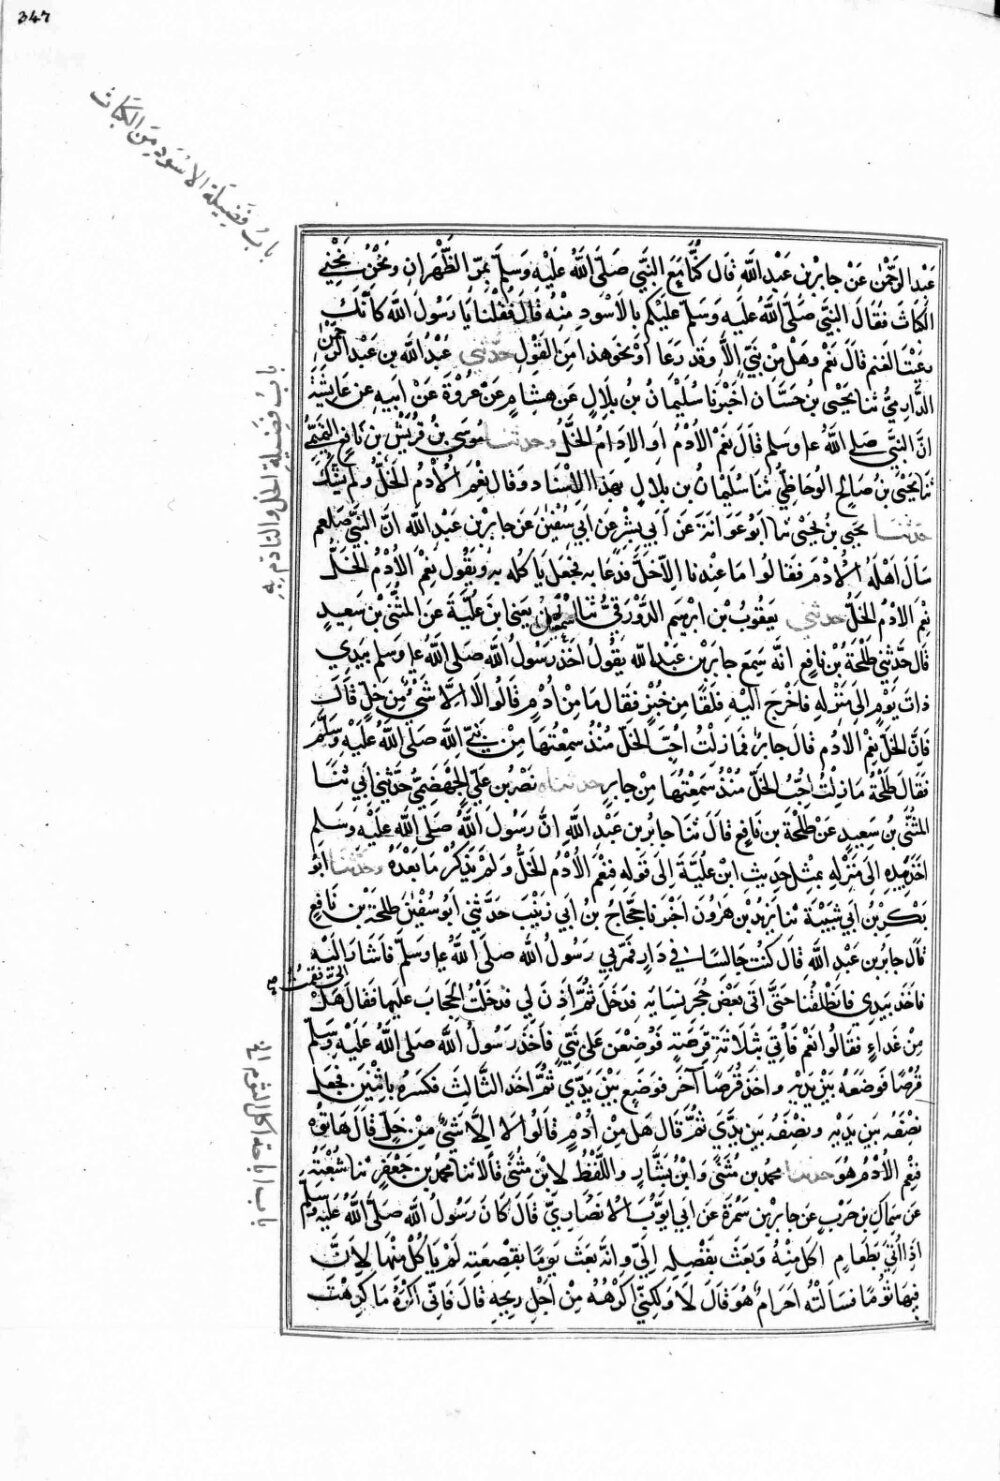 347
باب فضيلة الاسود من الكباث
عبد الرحمن عن جابر بن عبد الله قال كنا مع النبي صلى الله عليه وسلم بمر الظهران ونحن نجني
الكباث فقال النبي صلى الله عليه وسلم عليكم بالاسود منه قال فقلنا يا رسول الله كانك
رعيت الغنم قال نعم وهل من نبي الا وقد رعاها او نحو هذا من القول حدثني عبد الله بن عبد الرحمن
باب فضيلة الخل والتادم به
الدارمي ثنا يحيى بن حسان اخبرنا سليمان بن بلال عن هشام عن عروة عن ابيه عن عايشة
ان النبي صلى الله ع وسلم قال نعم الادم او الادام الخل وحدثنا موسى بن قريش بن نافع التميمي
ثنا يحيى بن صالح الوحاظي ثنا سليمان بن بلال بهذا الاسناد وقال نعم الادم الخل ولم يشك
حدثنا يحيى بن يحيى ثنا ابو عوانة عن ابي بشر عن ابي سفين عن جابر بن عبد الله ان النبي صلعم
سال اهله الادم فقالوا ما عندنا الا خل فدعا به فجعل ياكله به ويقول نعم الادم الخل
نعم الادم الخل حدثني يعقوب بن ابرهيم الدورقي ثنا اسمعيل يعني ابن علية عن المثنى بن سعيد
قال حدثني طلحة بن نافع انه سمع جابر بن عبد الله يقول اخذ رسول الله صلى الله ع وسلم بيدي
ذات يوم الى منزله فاخرج اليه فلقا من خبز فقال ما من ادم قالوا لا الا شيء من خل قال
فان الخل نعم الادم قال جابر فما زلت احب الخل منذ سمعتها من نبي الله صلى الله عليه وسلم
فقال طلحة ما زلت احب الخل منذ سمعتها من جابر حدثناه نصر بن علي الجهضمي حدثني ابي ثنا
المثنى بن سعيد عن طلحة بن نافع قال ثنا جابر بن عبد الله ان رسول الله صلى الله عليه وسلم
اخذ بيده الى منزله بمثل حديث ابن علية الى قوله فنعم الادم الخل ولم يذكر ما بعده وحدثنا ابو
بكر بن ابي شيبة ثنا يزيد بن هرون اخبرنا حجاج بن ابي زينب حدثني ابو سفين طلحة بن نافع
قال جابر بن عبد الله قال كنت جالسا في دار فمر بي رسول الله صلى الله ع وسلم فاشار اليه
الي فقمت
فاخذ بيدي فانطلقنا حتى اتى بعض حجر نسايه فدخل ثم اذن لي فدخلت الحجاب عليها فقال هل
من غداء فقالوا نعم فاتي بثلاثة قرصة فوضعن على نتي فاخذ رسول الله صلى الله عليه وسلم
قرصا فوضعه بين يديه واخذ قرصا آخر فوضع بين يدي ثم اخذ الثالث فكسره باثنين فجعل
نصفه بين يديه ونصفه بين يدي ثم قال هل من ادم قالوا لا الا شيء من خل قال هاتوه
فنعم الادم هو حدثنا محمد بن مثنى وابن بشار واللفظ لابن مثنى قالا ثنا محمد بن جعفر ثنا شعبة
باب اباحة اكل الثوم
عن سماك بن حرب عن جابر بن سمرة عن ابي ايوب الانصاري قال كان رسول الله صلى الله عليه وسلم
اذا اتي بطعام اكل منه وبعث بفضله الي وانه بعث يوما بقصعة لم ياكل منها لان
فيها ثوما فسالته احرام هو قال لا ولكني اكرهه من اجل ريحه قال فاني اكره ما كرهت